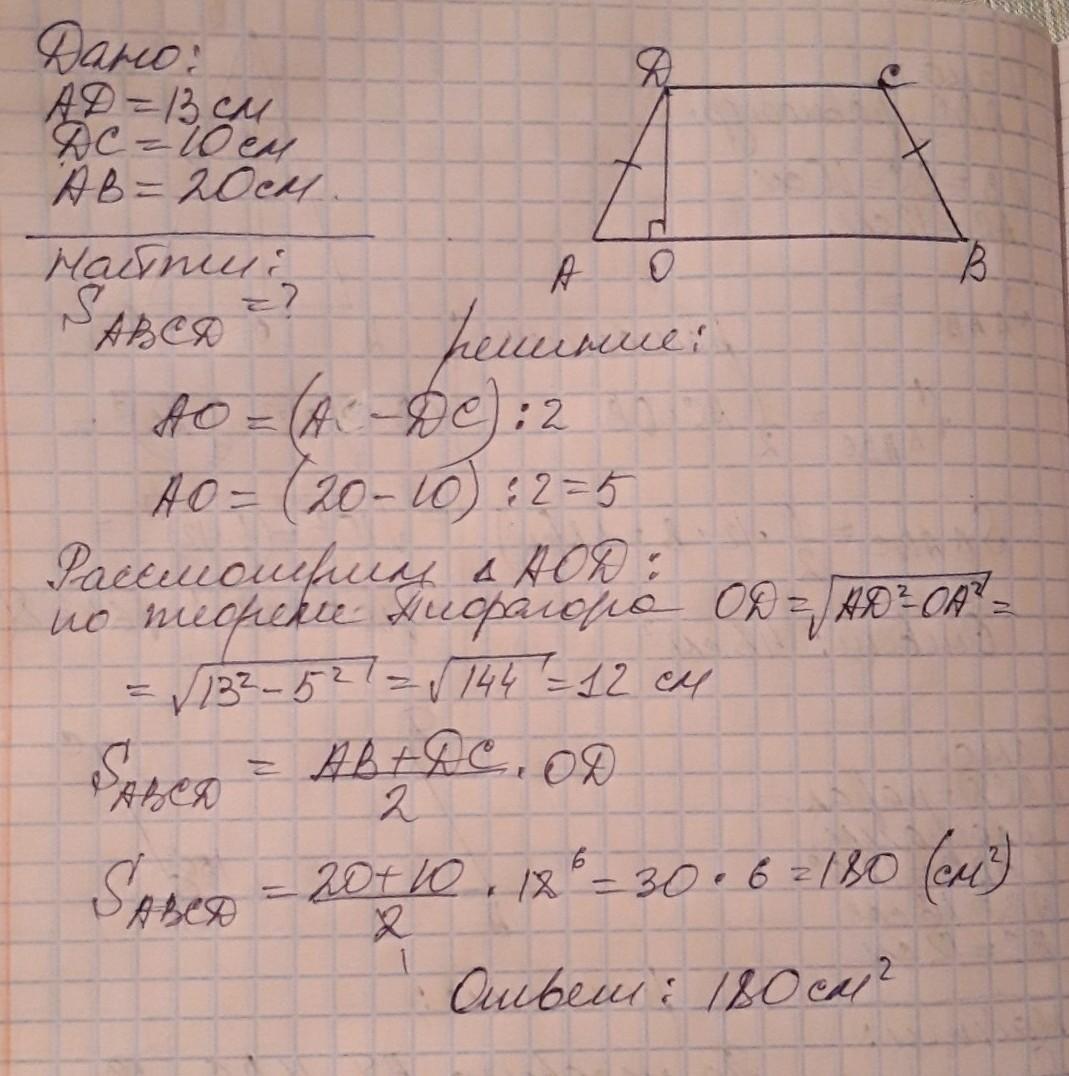 Дано:
AD = 13 см
DC = 10 см
AB = 20 см.
Найти:
S_ABCD = ?
D C
A O B
Решение:
AO = (A – DC) : 2
AO = (20 – 10) : 2 = 5
Рассмотрим △ AOD:
по теореме Пифагора OD = √(AD² – OA²) =
= √(13² – 5²) = √144 = 12 см
S_ABCD = (AB + DC)/2 · OD
S_ABCD = (20 + 10)/2 · 12 6 = 30 · 6 = 180 (см²)
1
Ответ: 180 см²